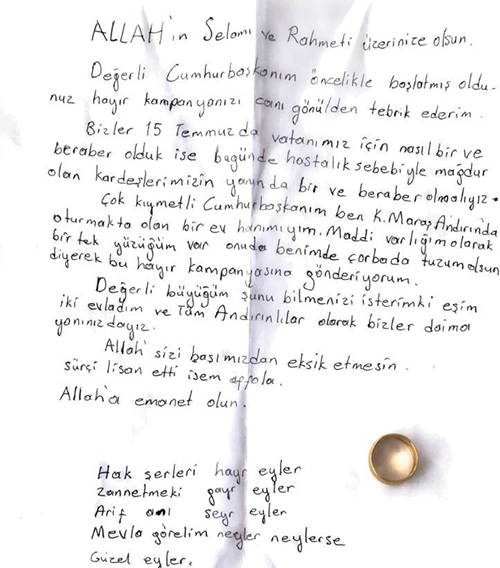 ALLAH'ın Selamı ve Rahmeti üzerinize olsun.
Değerli Cumhurbaşkanım öncelikle başlatmış oldu-
nuz hayır kampanyanızı canı gönülden tebrik ederim.
Bizler 15 Temmuz da vatanımız için nasıl bir ve
beraber olduk ise bugünde hastalık sebebiyle mağdur
olan kardeşlerimizin yanında bir ve beraber olmalıyız.
Çok kıymetli Cumhurbaşkanım ben K.Maraş Andırında
oturmakta olan bir ev hanımıyım. Maddi varlığım olarak
bir tek yüzüğüm var onuda benimde çorbada tuzum olsun
diyerek bu hayır kampanyasına gönderiyorum.
Değerli büyüğüm şunu bilmenizi isterimki eşim
iki evladım ve Tüm Andırınlılar olarak bizler daima
yanınızdayız.
Allah' sizi başımızdan eksik etmesin.
sürçi lisan etti isem affola.
Allah'a emanet olun.
Hak şerleri hayr eyler
Zannetmeki gayr eyler
Arif anı seyr eyler
Mevla görelim neyler neylerse
Güzel eyler.